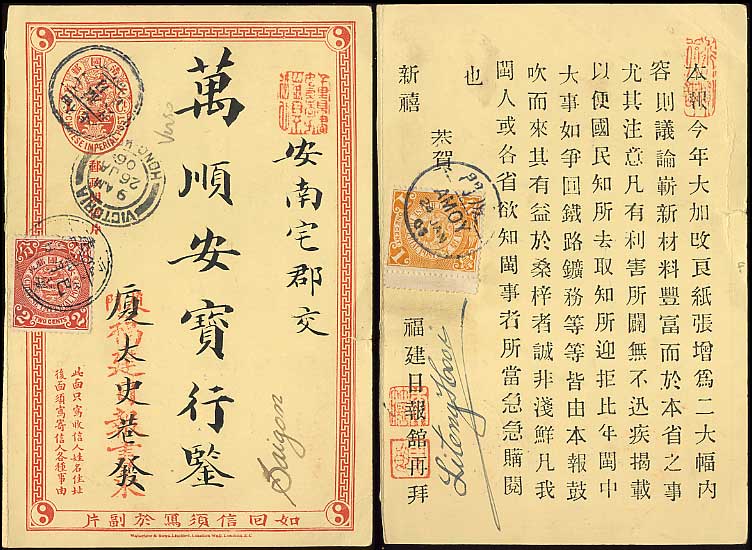 CHINESE IMPERIAL POST
VICTORIA
9 AM
26 JA
06
HONG K
Verso
TWO CENTS
安南宅郡交
萬順安寶行鑒
廈大史巷發
Saigon
此面只寫收信人姓名住址
後面須寫寄信人各種事由
如回信須寫於副片
Waterlow & Sons, Limited, London Wall, London, E.C.
本報今年大加改良紙張增爲二大幅內
容則議論嶄新材料豐富而於本省之事
尤其注意凡有利害所關無不迅疾揭載
以便國民知所去取知所迎拒比年閩中
大事如爭回鐵路鑛務等等皆由本報鼓
吹而來其有益於桑梓者誠非淺鮮凡我
閩人或各省欲知閩事者所當急急購閱
也
恭賀
新禧
福建日報館再拜
AMOY
JAN
1
Li Teng Hwee